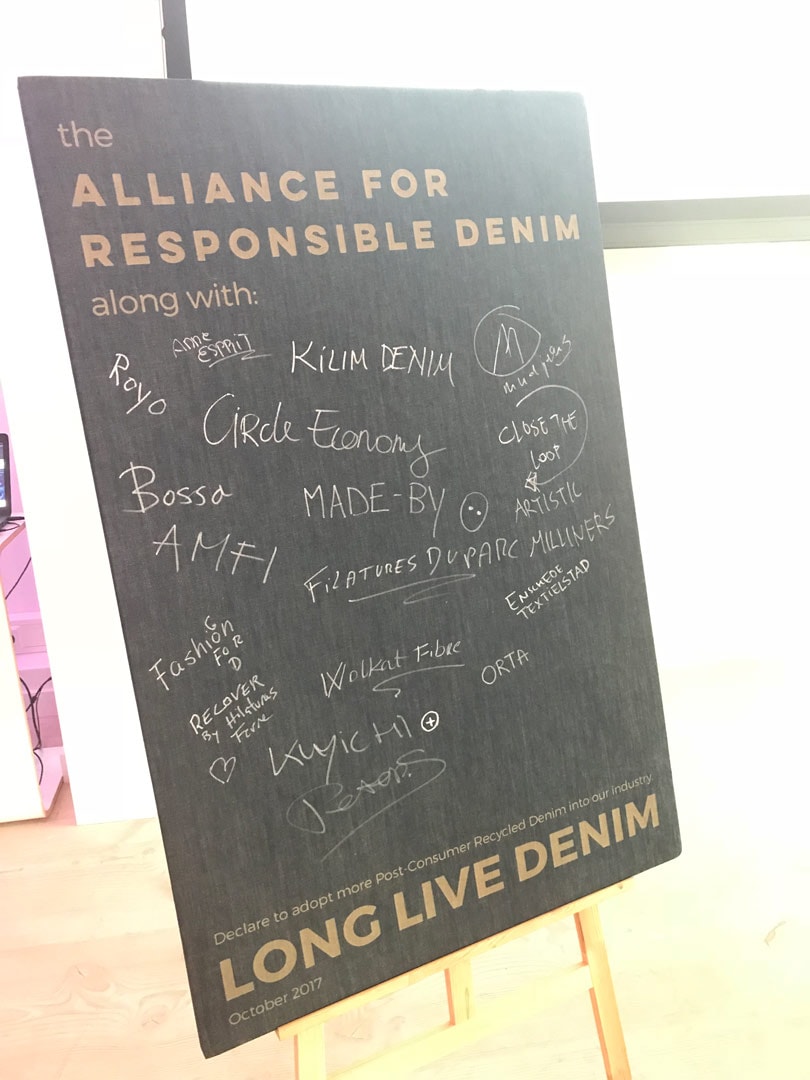 the
ALLIANCE FOR
RESPONSIBLE DENIM
along with:
Royo
ESPRIT
KILIM DENIM
M
mud jeans
Circle Economy
CLOSE THE
LOOP
Bossa
MADE-BY
ARTISTIC
MILLINERS
AMFI
FILATURES DU PARC
ENSCHEDE
TEXTIELSTAD
Fashion
FOR
GOOD
Wolkat Fibre
ORTA
RECOVER
By Hilaturas
Ferre
KUYICHI
Declare to adopt more Post-Consumer Recycled Denim into our industry.
LONG LIVE DENIM
October 2017